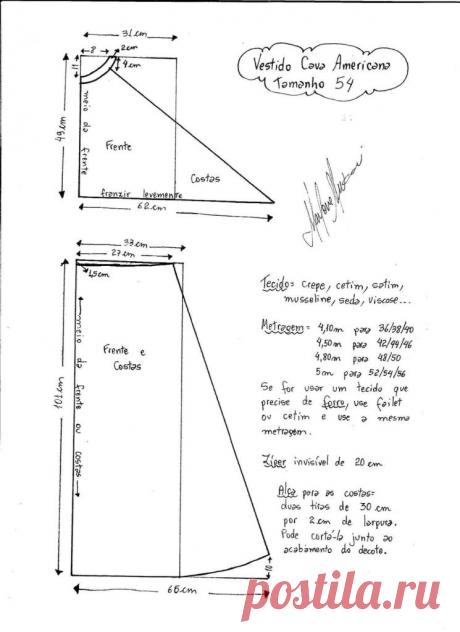 31 cm
8
2 cm
4 cm
11
49 cm
meio da frente
Frente
Costas
franzir levemente
62 cm
Vestido Cava Americana
Tamanho 54
33 cm
27 cm
1,5 cm
Frente e
Costas
meio da frente ou costas
101 cm
10
65 cm
Tecido= crepe, cetim, cetim,
musseline, seda, viscose...
Metragem= 4,10m para 36/38/40
4,50m para 42/44/46
4,80m para 48/50
5m para 52/54/56
Se for usar um tecido que
precise de forro, use failet
ou cetim e use a mesma
metragem.
Zíper invisível de 20 cm
Alça para as costas=
duas tiras de 30 cm
por 2 cm de largura.
Pode cortá-la junto ao
acabamento do decote.
postila.ru